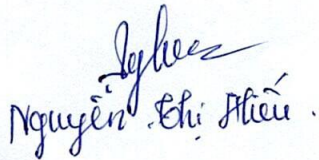 Nguyễn Thị Hiếu.